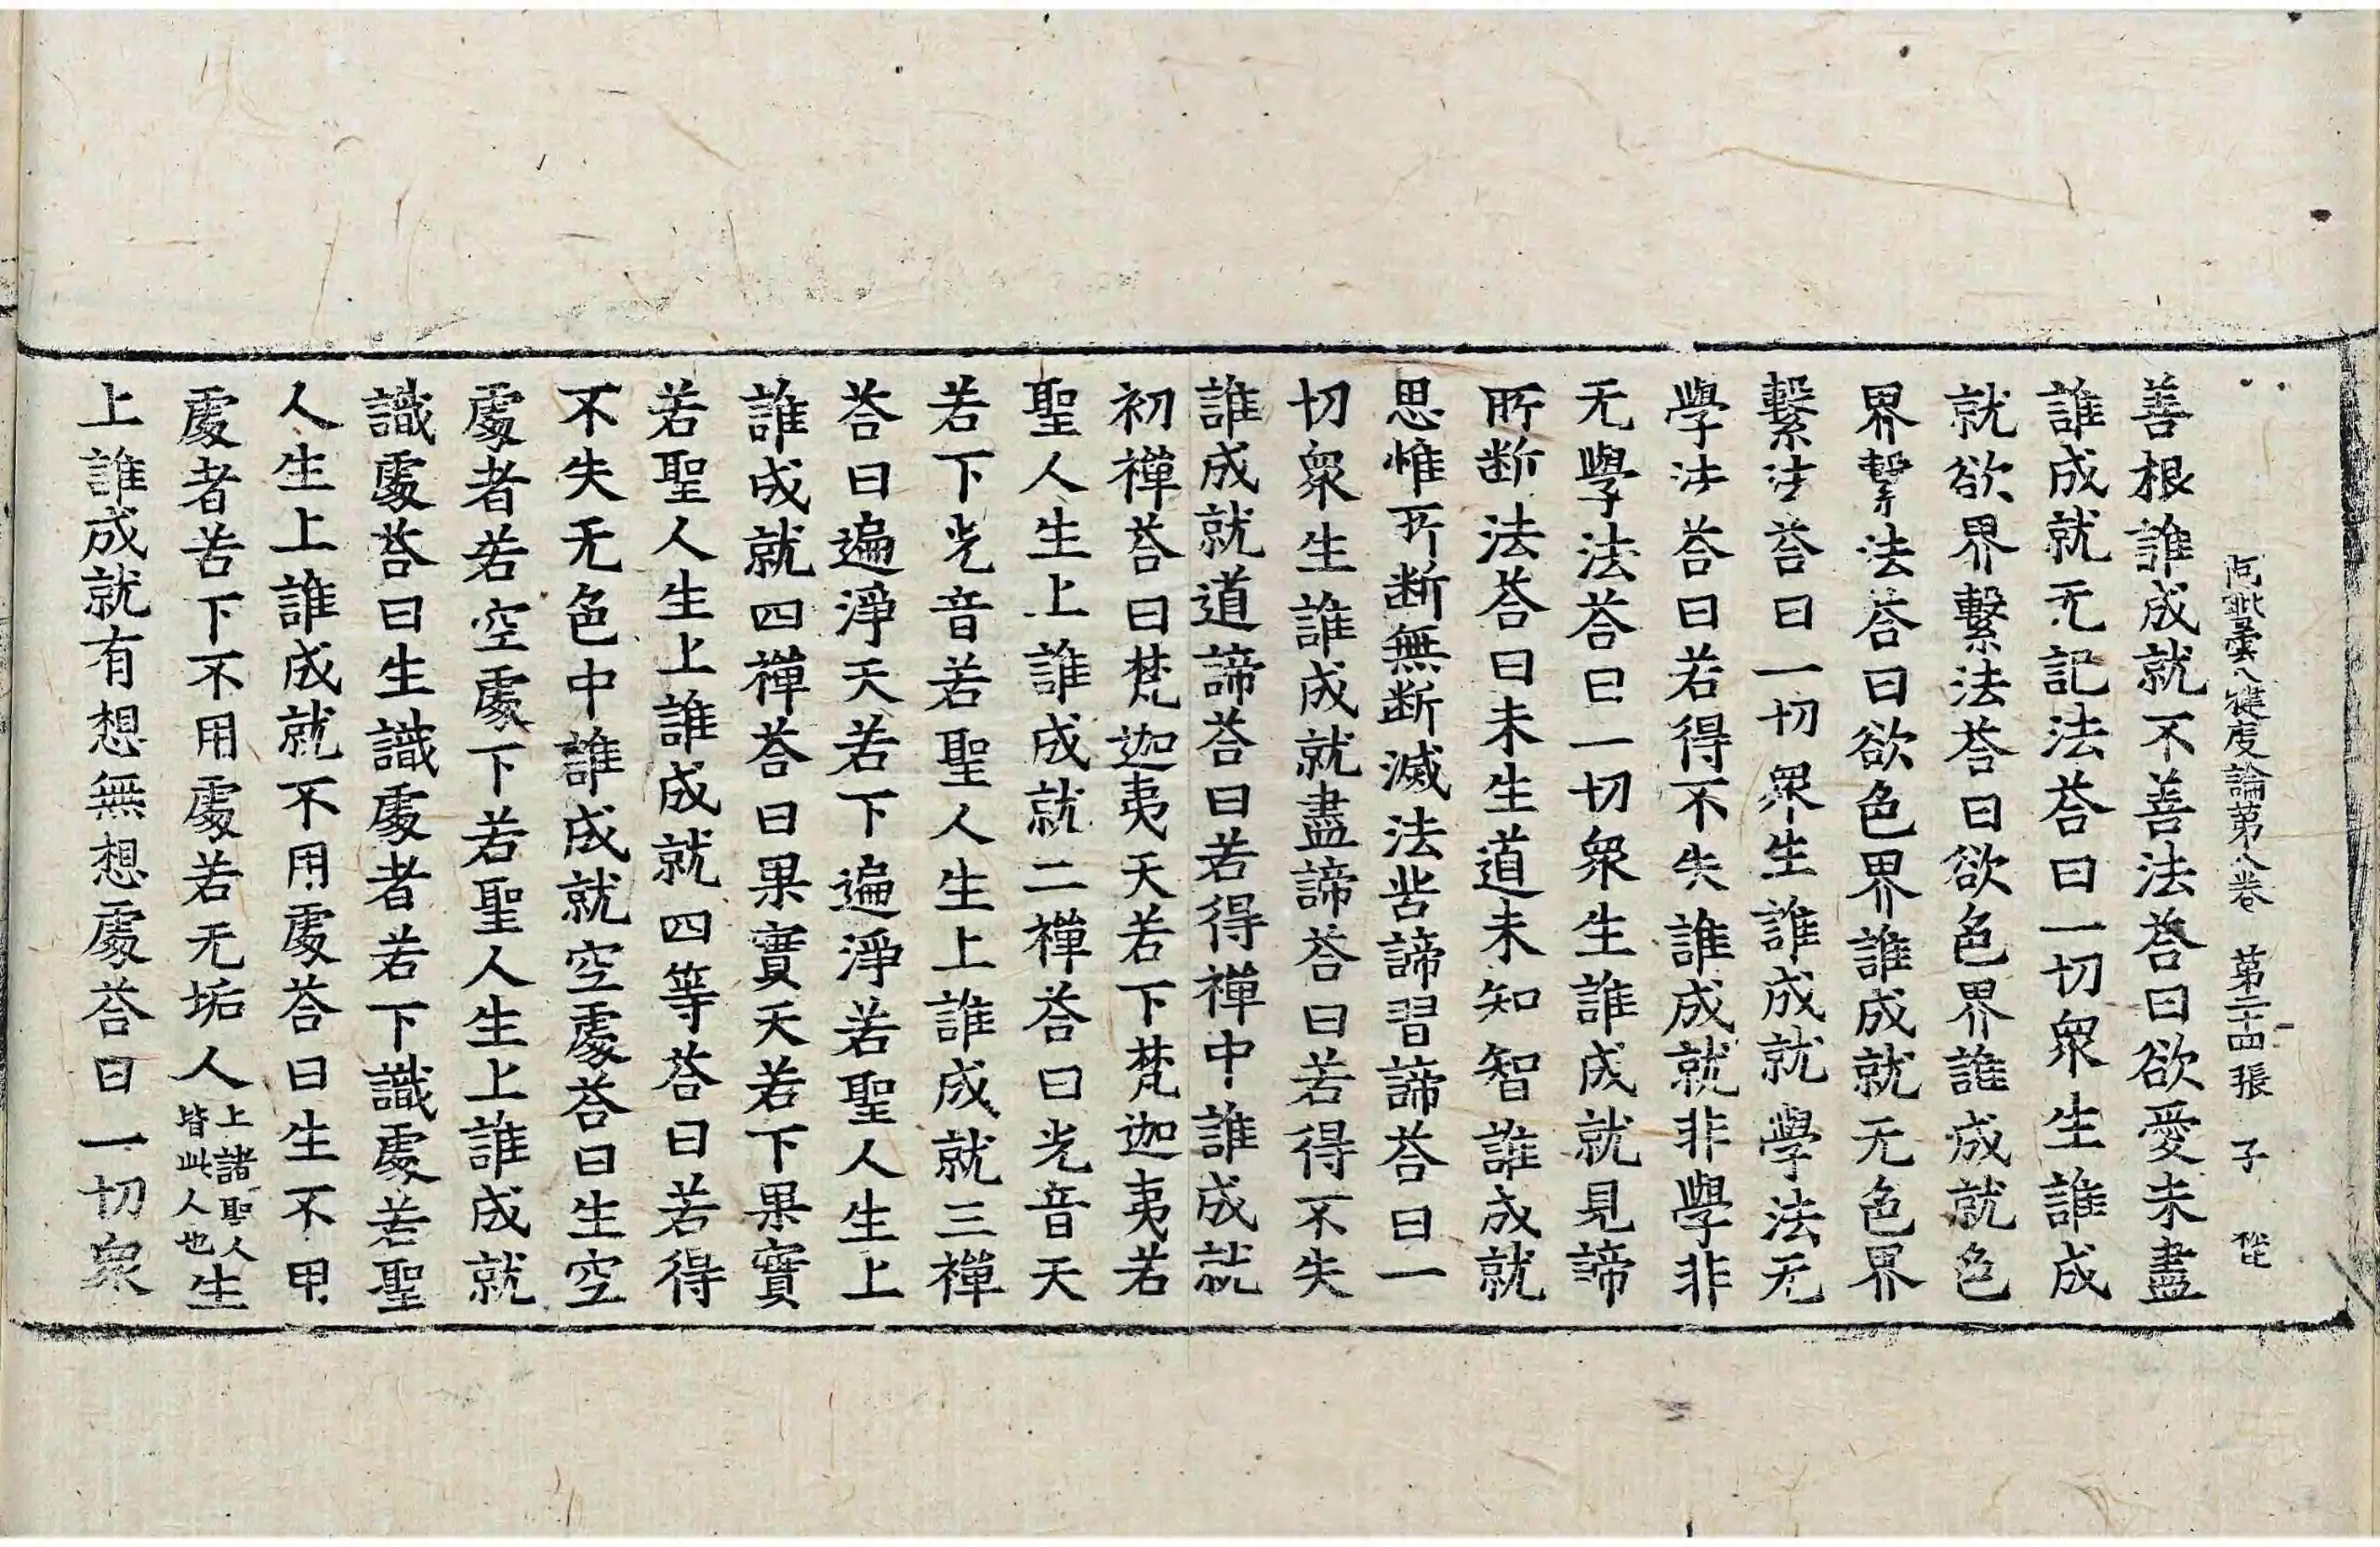 阿毗曇八犍度論第八卷 第二十四張 子
善根誰成就不善法荅曰欲愛未盡
誰成就无記法荅曰一切衆生誰成
就欲界繫法荅曰欲色界誰成就色
界繫法荅曰欲色界誰成就无色界
繫法荅曰一切衆生誰成就學法无
學法荅曰若得不失誰成就非學非
无學法荅曰一切衆生誰成就見諦
所断法荅曰未生道未知智誰成就
思惟所断無断滅法苦諦習諦荅曰一
切衆生誰成就盡諦荅曰若得不失
誰成就道諦荅曰若得禪中誰成就
初禪荅曰梵迦夷天若下梵迦夷若
聖人生上誰成就二禪荅曰光音天
若下光音若聖人生上誰成就三禪
荅曰遍淨天若下遍淨若聖人生上
誰成就四禪荅曰果實天若下果實
若聖人生上誰成就四等荅曰若得
不失无色中誰成就空處荅曰生空
處者若空處下若聖人生上誰成就
識處荅曰生識處者若下識處若聖
人生上誰成就不用處荅曰生不用
處者若下不用處若无垢人上諸聖人皆此人也生
上誰成就有想無想處荅曰一切衆